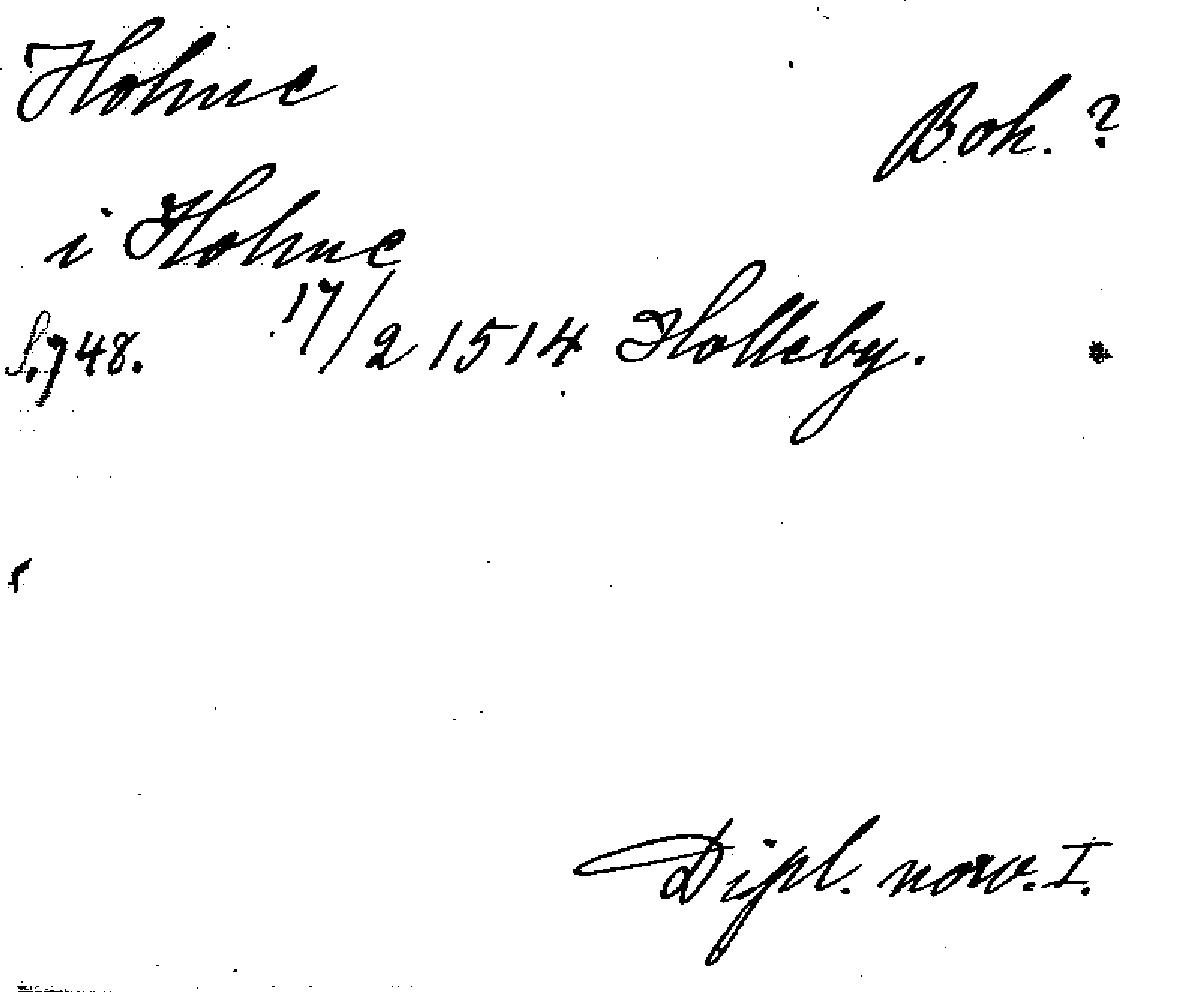 Hohne
Bok. ?
i Hohne
S. 748. 17/2 1514 Holleby. *
Dipl. norv. I.